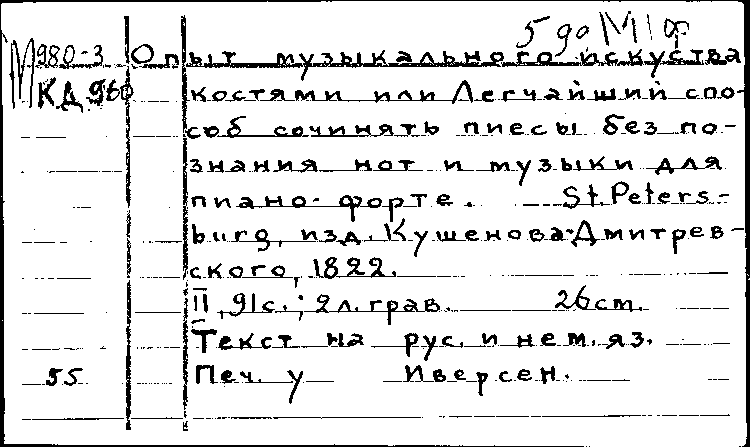 5 до М1ф
М980-3 Опыт музыкального искуства
КД 960 костями или Легчайший спо-
соб сочинять пиесы без по-
знания нот и музыки для
пиано-форте. St. Peters-
burg, изд. Кушенова-Дмитрев-
ского, 1822.
II, 91 с.; 2 л. грав. 26 cm.
Текст на рус. и нем. яз.
55 Печ. у Иверсен.